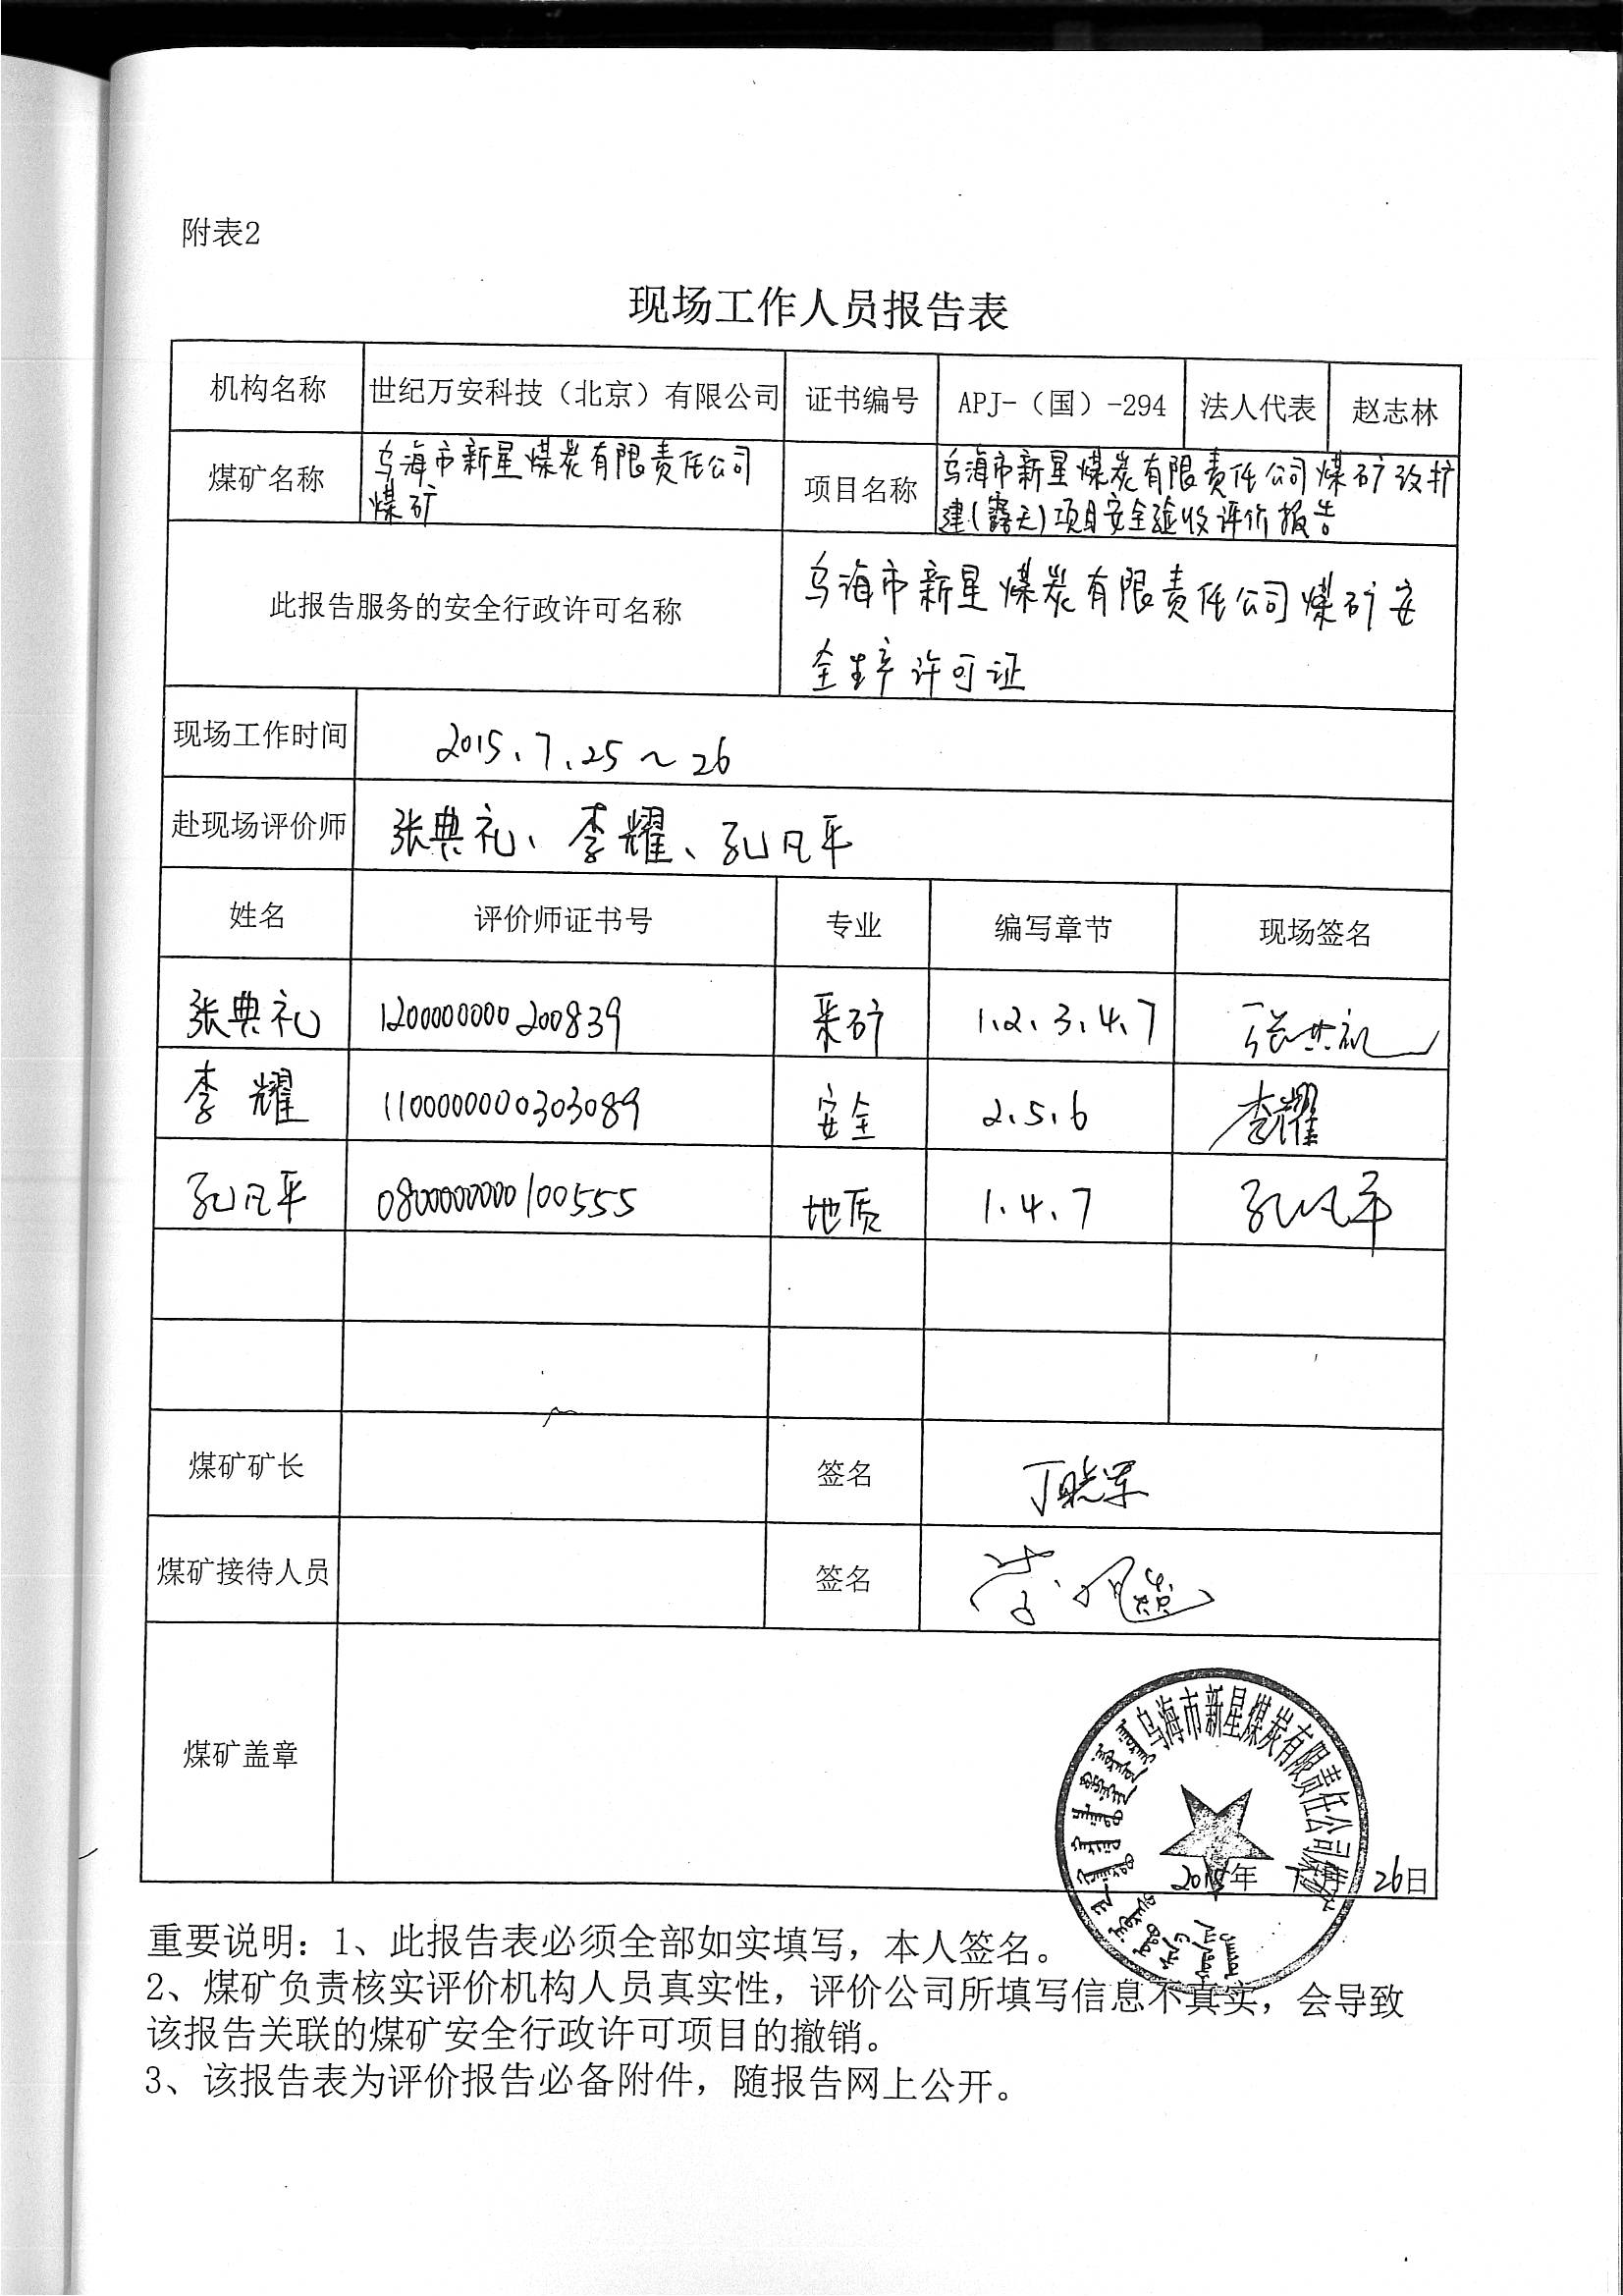 附表2
现场工作人员报告表
机构名称 世纪万安科技（北京）有限公司 证书编号 APJ-（国）-294 法人代表 赵志林
煤矿名称 乌海市新星煤炭有限责任公司
煤矿
项目名称 乌海市新星煤炭有限责任公司煤矿改扩
建(露天)项目安全验收评价报告
此报告服务的安全行政许可名称 乌海市新星煤炭有限责任公司煤矿安
全生产许可证
现场工作时间 2015、7、25～26
赴现场评价师 张典礼、李耀、孔凡平
姓名 评价师证书号 专业 编写章节 现场签名
张典礼 1200000000200839 采矿 1、2、3、4、7 张典礼
李耀 1100000000303089 安全 2、5、6 李耀
孔凡平 0800000000100555 地质 1、4、7 孔凡平
煤矿矿长 签名 丁晓军
煤矿接待人员 签名
煤矿盖章
乌海市新星煤炭有限责任公司煤矿
2015年 7月 26日
重要说明：1、此报告表必须全部如实填写，本人签名。
2、煤矿负责核实评价机构人员真实性，评价公司所填写信息不真实，会导致
该报告关联的煤矿安全行政许可项目的撤销。
3、该报告表为评价报告必备附件，随报告网上公开。